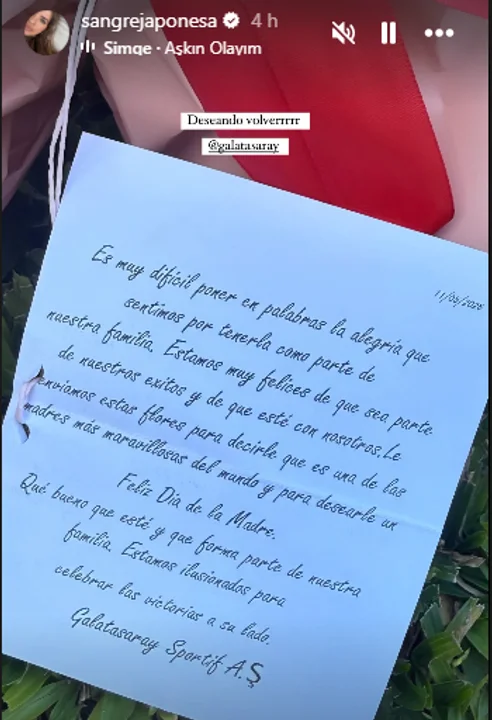 sangrejaponesa 4 h
Simge · Aşkın Olayım
Deseando volverrrrr
@galatasaray
11/05/2025
Es muy difícil poner en palabras la alegría que
sentimos por tenerla como parte de
nuestra familia. Estamos muy felices de que sea parte
de nuestros exitos y de que esté con nosotros.Le
enviamos estas flores para decirle que es una de las
madres más maravillosas del mundo y para desearle un
Feliz Día de la Madre.
Qué bueno que esté y que forma parte de nuestra
familia. Estamos ilusionados para
celebrar las victorias a su lado.
Galatasaray Sportif A.Ş